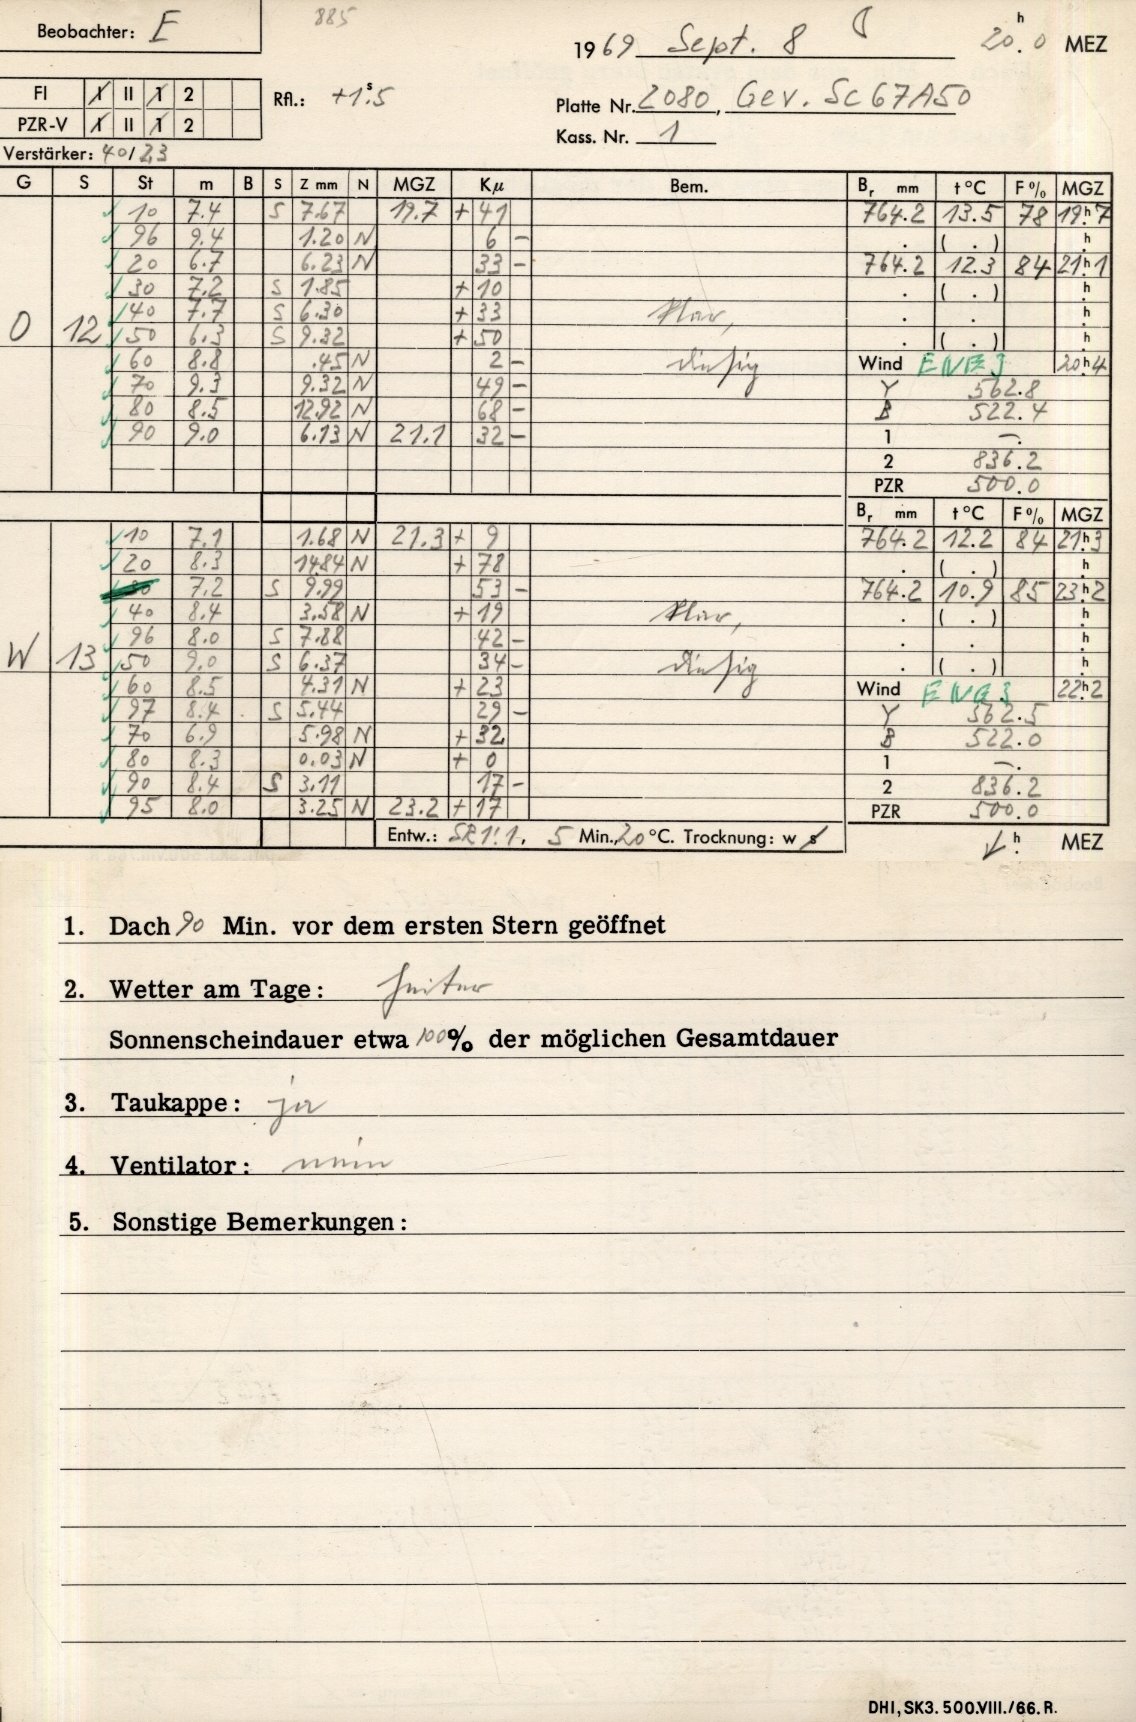 Beobachter: E
885
1969 Sept. 8 20h.0 MEZ
FI I II 1 2
PZR-V I II 1 2
Rfl.: +1s.5
Platte Nr. 2080, Gev. Sc67A50
Kass. Nr. 1
Verstärker: 40/23
G S St m B S Z mm N MGZ Kµ Bem. Br mm t°C F% MGZ
10 7.4 S 7.67 19.7 + 41 764.2 13.5 78 19h.7
96 9.4 1.20 N 6 − . ( . ) h.
20 6.7 6.23 N 33 − 764.2 12.3 84 21h.1
30 7.2 S 1.85 + 10 . ( . ) h.
40 7.7 S 6.30 + 33 klar, . . h.
O 12 50 6.3 S 9.32 + 50 . ( . ) h.
60 8.8 .45 N 2 − diesig Wind ENE3 20h.4
70 9.3 9.32 N 49 − Y 562.8
80 8.5 12.92 N 68 − B 522.4
90 9.0 6.13 N 21.1 32 − 1 —.
2 836.2
PZR 500.0
Br mm t°C F% MGZ
10 7.1 1.68 N 21.3 + 9 764.2 12.2 84 21h.3
20 8.3 14.84 N + 78 . ( . ) h.
30 7.2 S 9.99 53 − 764.2 10.9 85 23h.2
40 8.4 3.58 N + 19 klar, . ( . ) h.
96 8.0 S 7.88 42 − . . h.
W 13 50 9.0 S 6.37 34 − diesig . ( . ) h.
60 8.5 4.31 N + 23 Wind ENE3 22h.2
97 8.4 S 5.44 29 − Y 562.5
70 6.9 5.98 N + 32 B 522.0
80 8.3 0.03 N + 0 1 —.
90 8.4 S 3.11 17 − 2 836.2
95 8.0 3.25 N 23.2 + 17 PZR 500.0
Entw.: 5 Min., 20 °C. Trocknung: w s h. MEZ
1. Dach 90 Min. vor dem ersten Stern geöffnet
2. Wetter am Tage: heiter
Sonnenscheindauer etwa 100% der möglichen Gesamtdauer
3. Taukappe: ja
4. Ventilator: nein
5. Sonstige Bemerkungen:
DHI, SK3. 500.VIII./66. R.